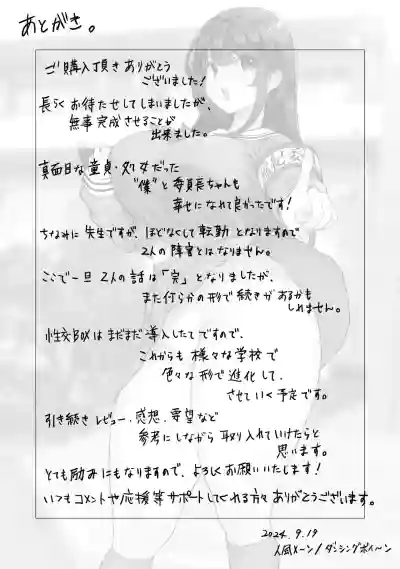 あとがき。
ご購入頂きありがとう
ございました!
長らくお待たせしてしまいましたが、
無事完成させることが
出来ました。
真面目な童貞・処女だった
"僕"と委員長ちゃんも
幸せになれて良かったです!
ちなみに先生ですが、ほどなくして転勤となりますので
2人の障害とはなりません。
ここで一旦2人の話は「完」となりましたが、
また何らかの形で続きがあるかも
しれません。
性交BOXはまだまだ導入したてですので、
これからも様々な学校で
色々な形で進化して、
させていく予定です。
引き続きレビュー、感想、要望など
参考にしながら取り入れていけたらと
思います。
とても励みにもなりますので、よろしくお願いいたします!
いつもコメントや応援等サポートしてくれる方々ありがとうございます。
2024.9.19
人風メーン/ダンシングボイ〜ン